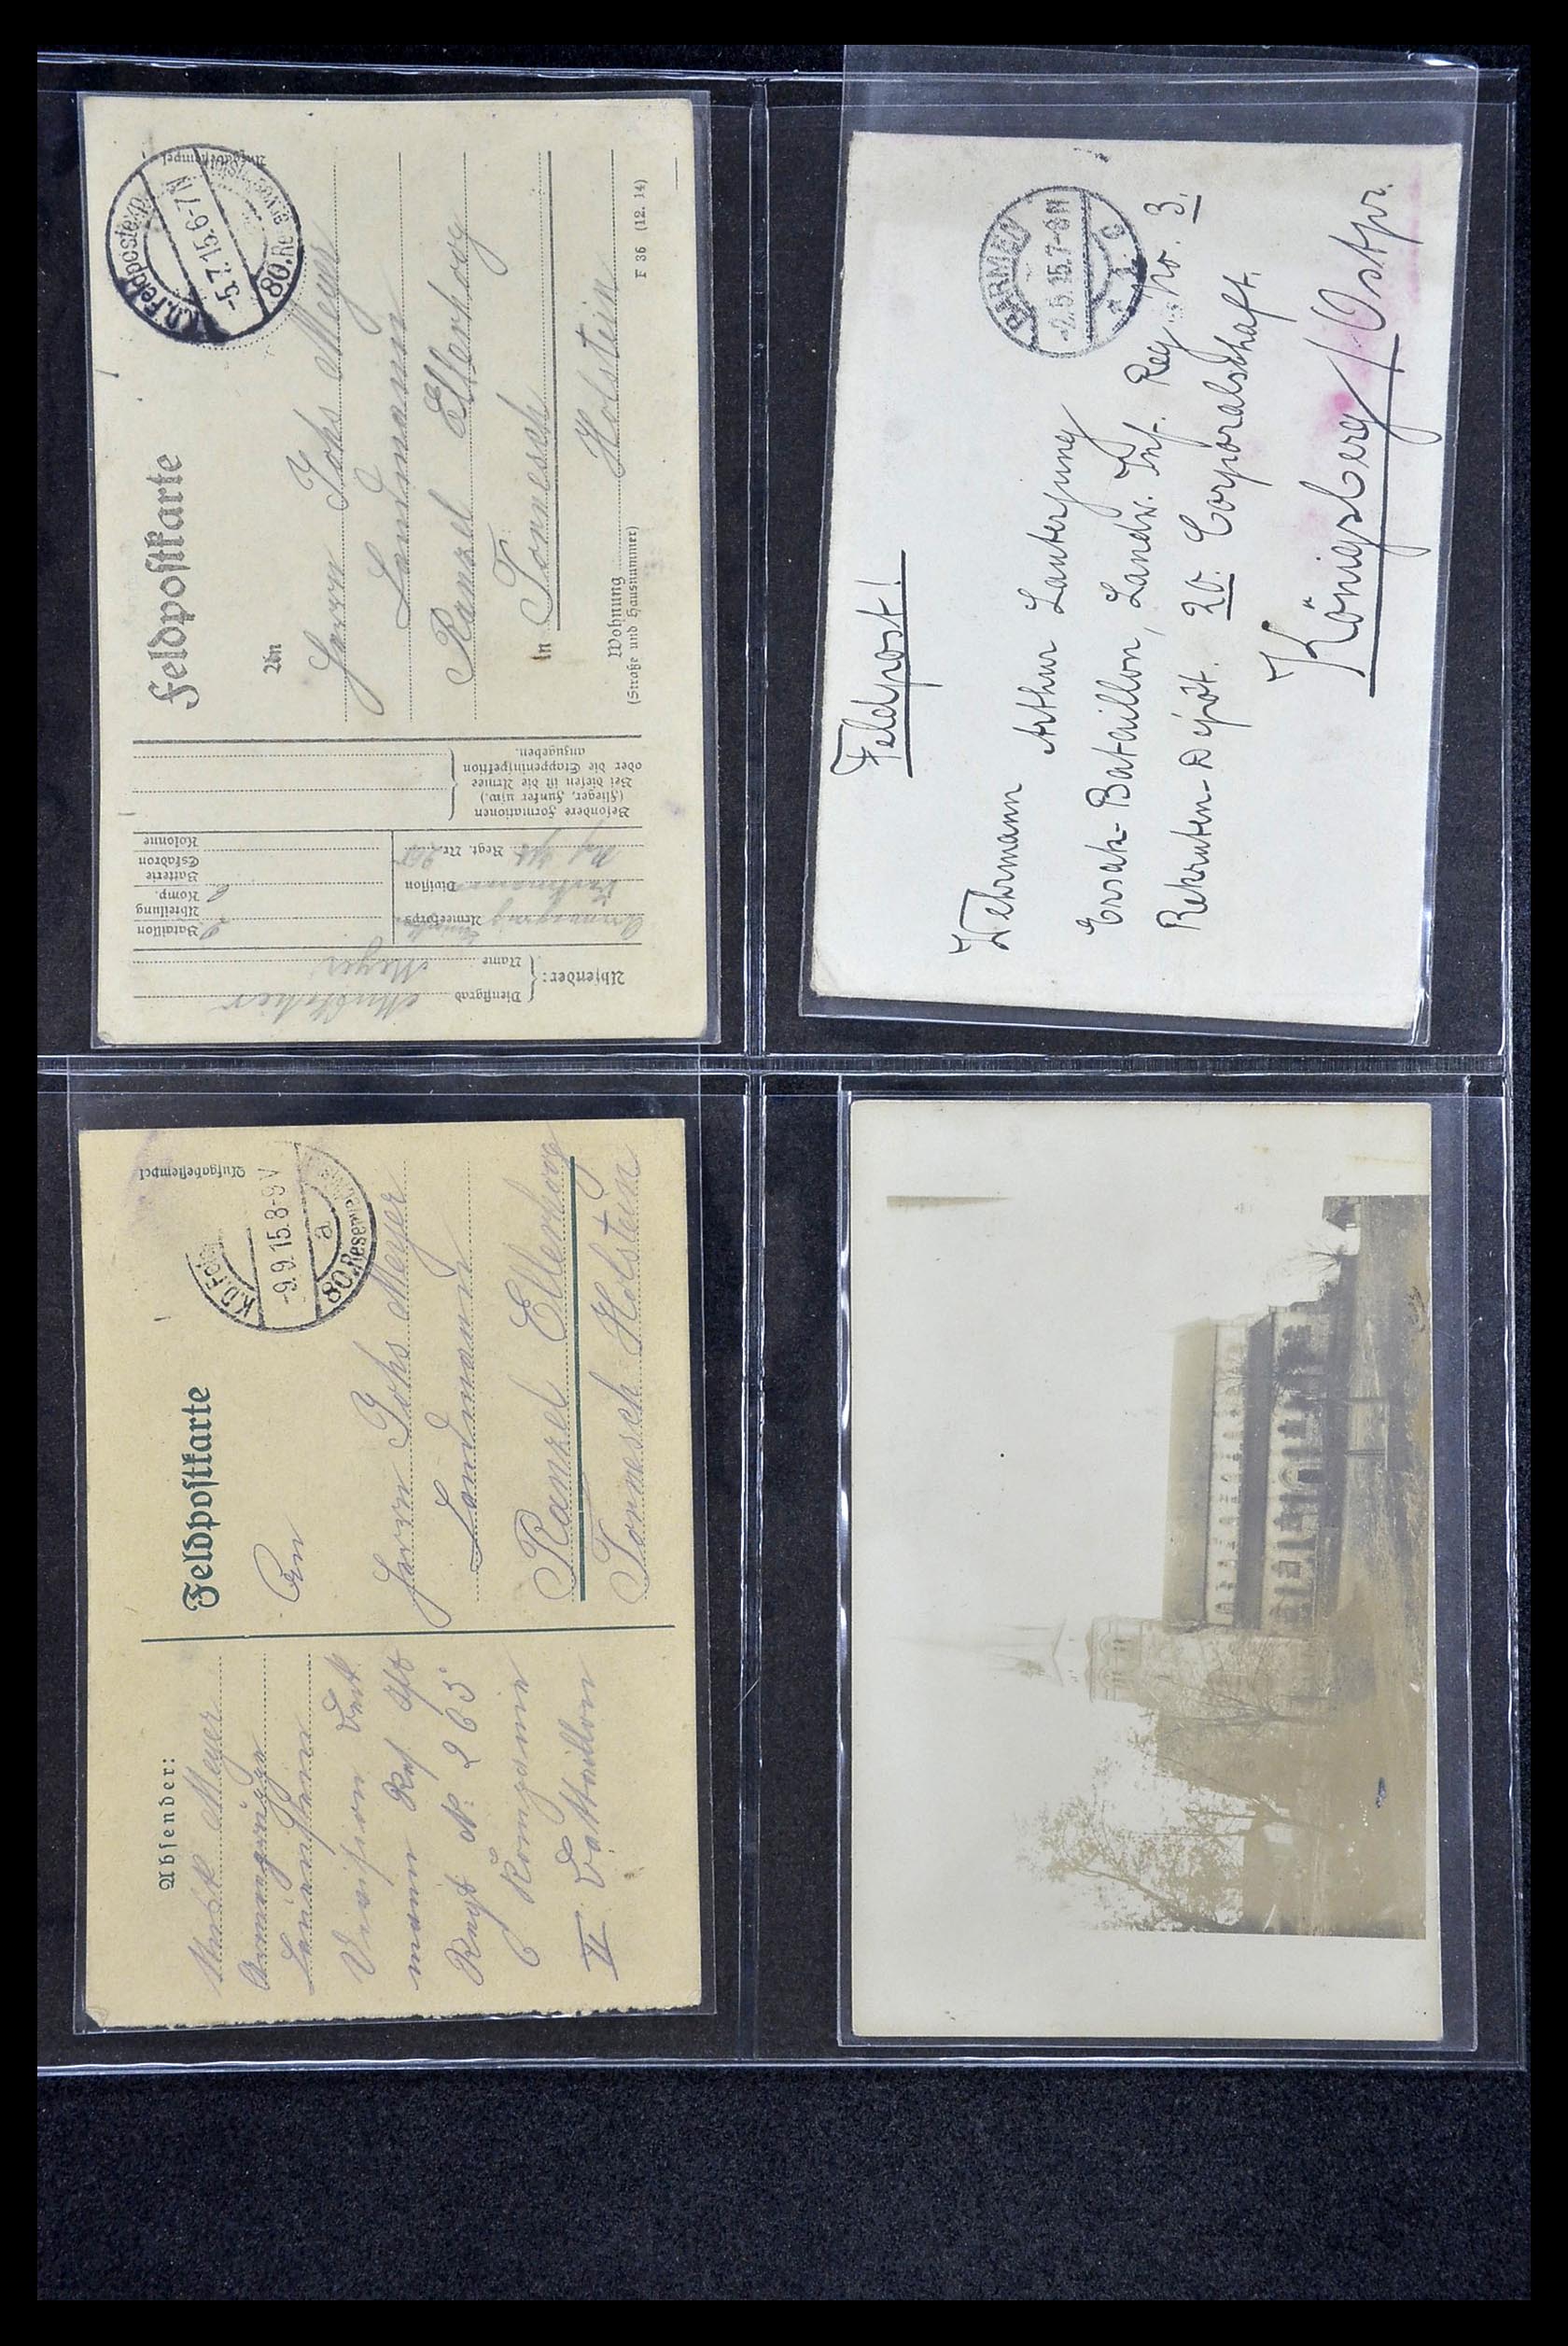 Feldpostkarte
Aufgabestempel
K.D. Feldpostexp.
-5.7.15.6-7N
80. Reserve
An
Herrn Johs Meyer
Landmann
Ranzel Ellerhoog
in Tornesch
Wohnung Holstein
(Straße und Hausnummer)
F 36 (12. 14)
Absender:
Dienstgrad Musketier
Name Meyer
Armeekorps
Division
Regt. Nr.
Bataillon 2
Abteilung
Komp. 6
Batterie
Eskadron
Kolonne
Besondere Formationen
(Flieger, Funker usw.)
Bei diesen ist die Armee
oder die Etappeninspektion
anzugeben.
Feldpost!
BARMEN
-2.5.15.7-8N
Wehrmann Arthur Lauterjung
Ersatz-Bataillon, Landw. Inf. Reg No. 3.
Rekruten-Depôt. 20. Corporalschaft.
Königsberg / Ostpr.
Feldpostkarte
Aufgabestempel
-9.9.15.8-9V
a
80. Reserve
An
Herrn Johs Meyer
Landmann
Ranzel Ellerhoog
Tornesch Holstein
Absender:
Musk Meyer
Division Beck
mann Res Inft
Regt Nr. 265
6 Kompanie
II. Battaillon